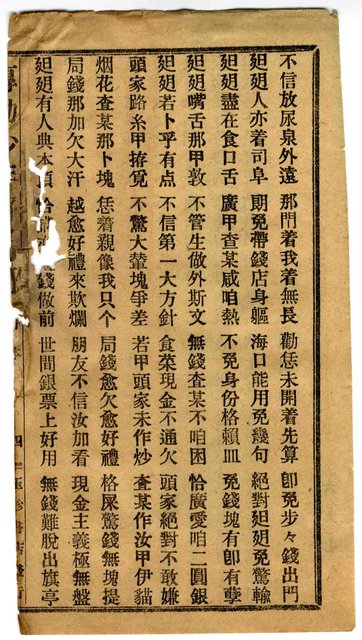 不信放尿泉外遠 那門着我着無長 勸恁未開着先算 卽免步々錢出門
𨑨迌人亦着司阜 期免帶錢店身軀 海口能用免幾句 絕對𨑨迌免驚輸
盡在食口舌 廣甲查某咸咱熱 不免身份格賴皿 免錢塊有卽有孽
嘴舌那甲敦 不管生做外斯文 無錢查某不咱困 恰廣愛咱二圓銀
若卜乎有点 不信第一大方針 食菜現金不通欠 頭家絕對不敢嫌
頭家路糸甲揜覓 不驚大輦塊爭差 若甲頭家未作炒 查某作汝甲伊貓
烟花查某那卜塊 恁着親像我只个 局錢愈欠愈好禮 格屎驚錢無塊提
局錢那加欠大汗 越愈好禮來欺爛 朋友不信汝加看 現金主義極無盤
有人典本 錢做前 世間銀票上好用 無錢難脫出旗亭
四